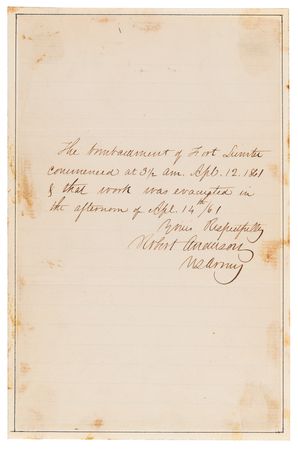 The bombardment of Fort Sumter
commenced at 3½ am. Apl. 12. 1861
& that work was evacuated in
the afternoon of Apl. 14th/61
Yours Respectfully
Robert Anderson
US Army